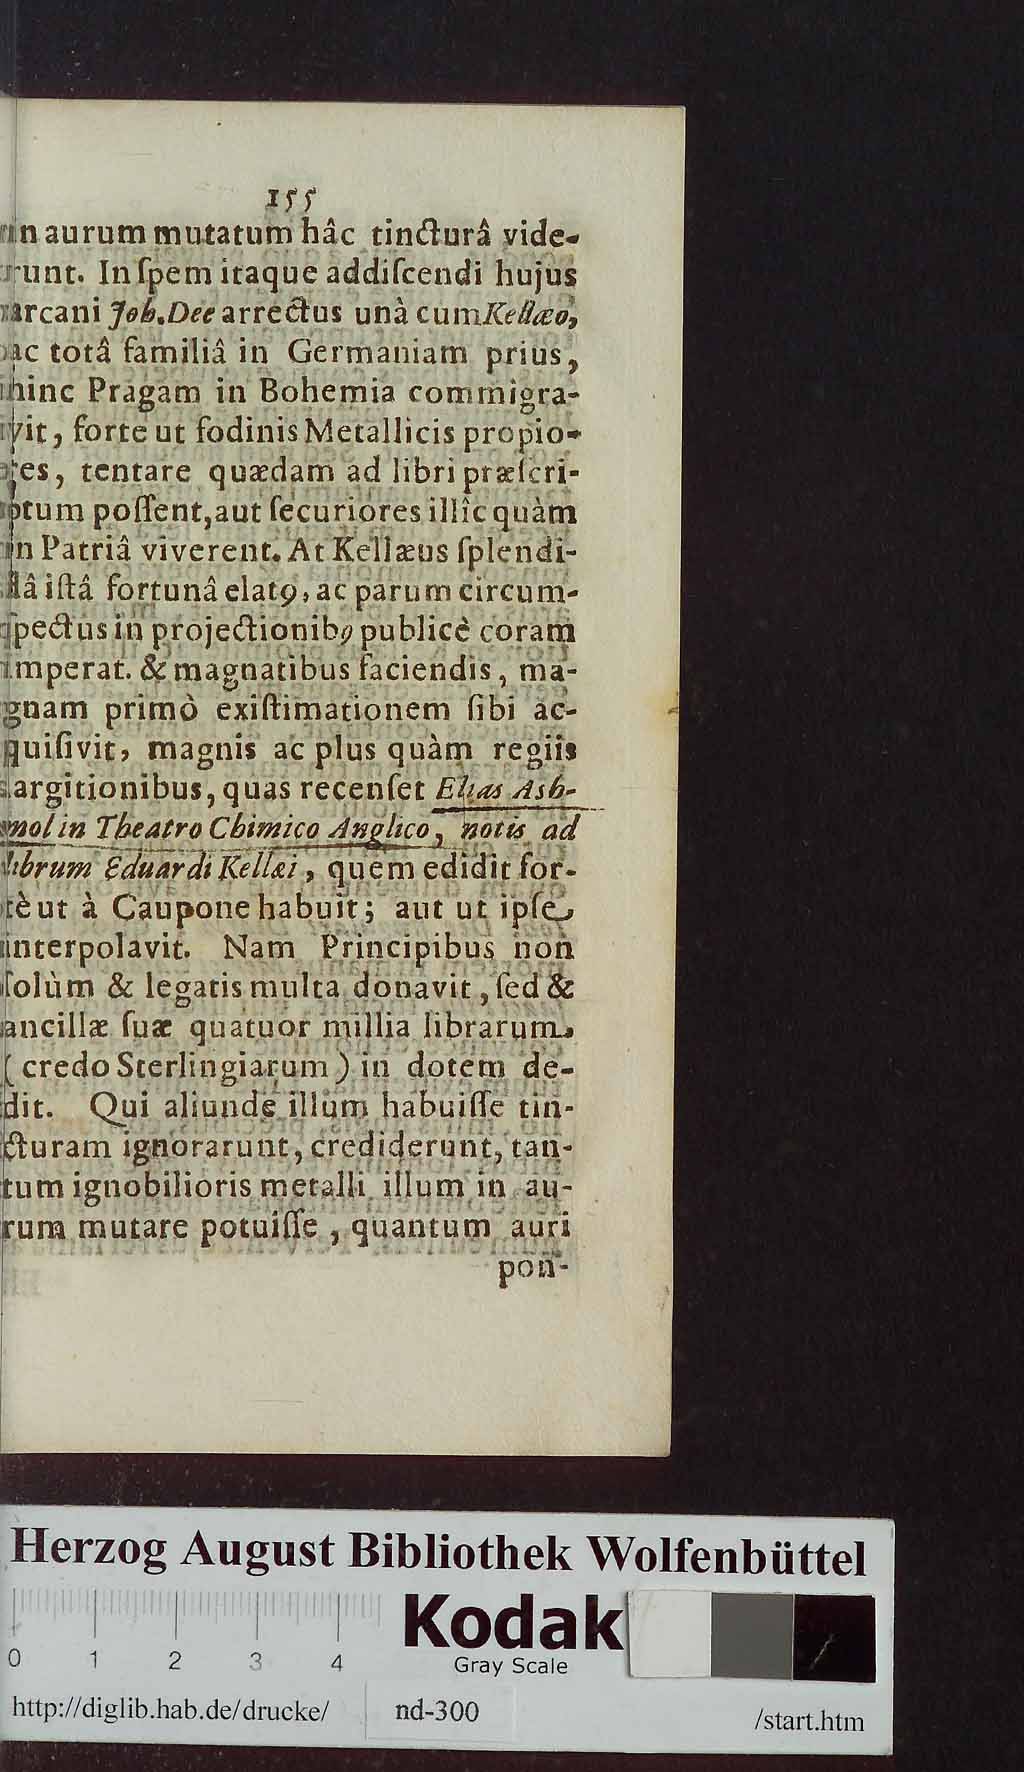 155
in aurum mutatum hâc tincturâ vide-
runt. In ſpem itaque addiſcendi hujus
arcani Joh. Dee arrectus unà cum Kellæo,
ac totâ familiâ in Germaniam prius,
hinc Pragam in Bohemia commigra-
vit, forte ut fodinis Metallicis propio-
res, tentare quædam ad libri præſcri-
ptum poſſent, aut ſecuriores illîc quàm
in Patriâ viverent. At Kellæus ſplendi-
dâ iſtâ fortunâ elatꝰ, ac parum circum-
ſpectus in projectionibꝰ publicè coram
imperat. & magnatibus faciendis, ma-
gnam primò exiſtimationem ſibi ac-
quiſivit, magnis ac plus quàm regiis
largitionibus, quas recenſet Elias Ash-
mol in Theatro Chimico Anglico, notis ad
librum Eduardi Kellæi, quem edidit for-
tè ut à Caupone habuit; aut ut ipſe
interpolavit. Nam Principibus non
ſolùm & legatis multa donavit, ſed &
ancillæ ſuæ quatuor millia librarum
(credo Sterlingiarum) in dotem de-
dit. Qui aliunde illum habuiſſe tin-
cturam ignorarunt, crediderunt, tan-
tum ignobilioris metalli illum in au-
rum mutare potuiſſe, quantum auri
pon-
Herzog August Bibliothek Wolfenbüttel
0 1 2 3 4
Kodak
Gray Scale
http://diglib.hab.de/drucke/ nd-300 /start.htm